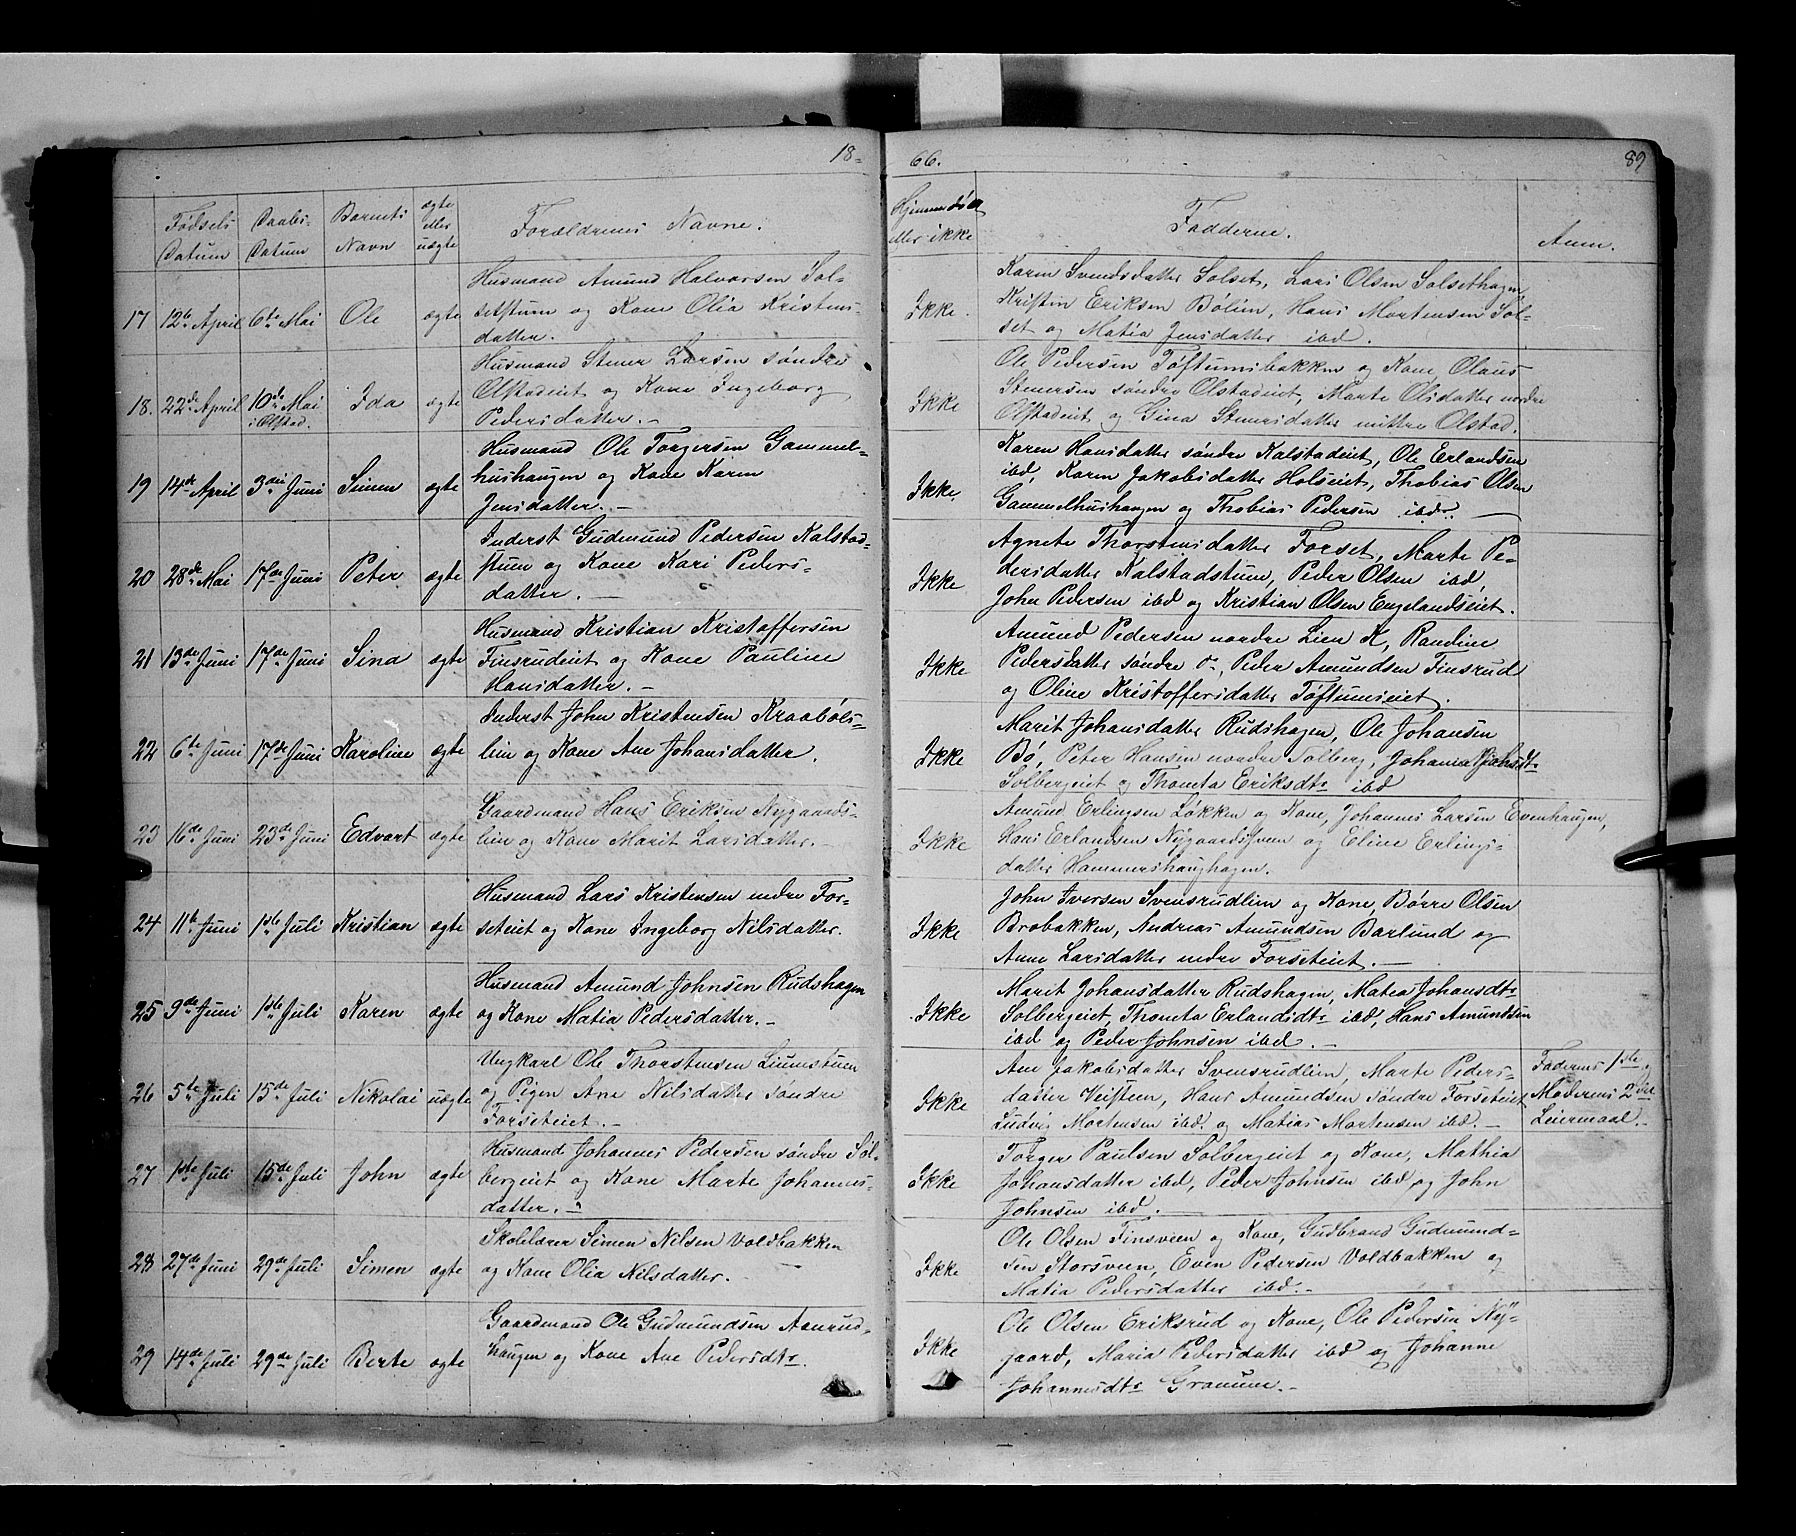 18-
66.
89
Fødsels Datum | Daabs-Datum | Barnets Navn | ægte eller uægte | Forældrenes Navne. | Hjemmedøbt eller ikke | Fadderne. | Anm.
17 | 12te April | 6te Mai | Ole | ægte | Husmand Amund Halvorsen Sol-
setstuen og Kone Olia Kristens-
datter.
Ikke. | Karen Svendsdatter Solset, Lars Olsen Solsethagen,
Kristin Eriksen Bølien, Hans Mortensen Sol-
set og Matia Jensdatter ibd.
18. | 22de April | 10de Mai i Olstad. | Ida | ægte | Husmand Stener Larsen søndre
Olstadeiet og Kone Ingeborg
Pedersdatter. -
Ikke | Ole Pedersen Tøftumsbakken og Kone, Olaus
Stenersen søndre Olstadeiet, Marte Olsdatter nordre
Olstadeiet og Gina Stenersdatter mittre Olstad.
19 | 14de April | 3die Juni | Simen | ægte | Husmand Ole Torgersen Gammel-
hushaugen og Kone Karen
Jensdatter. -
Ikke. | Karen Hansdatter søndre Kalstadeiet, Ole Erlandsen
ibd, Karen Jakobsdatter Holseiet, Thobias Olsen
Gammelhushaugen og Thobias Pedersen ibd. -
20 | 28de Mai | 17de Juni | Peter | ægte | Inderst Gudmund Pedersen Kalstad-
stuen og Kone Kari Peders-
datter. -
Ikke | Agnete Thorstensdatter Forset, Marte Pe-
dersdatter Kalstadstuen, Peder Olsen ibd,
John Pedersen ibd og Kristian Olsen Engelandseiet.
21 | 13de Juni | 17de Juni | Sina | ægte | Husmand Kristian Kristoffersen
Finsrudeiet og Kone Pauline
Hansdatter. -
Ikke | Amund Pedersen nordre Lien K, Randine
Pedersdatter søndre do, Peder Amundsen Finsrud
og Oline Kristoffersdatter Tøftumseiet.
22 | 6te Juni | 17de Juni | Karoline | ægte | Inderst John Kristensen Kraabøls-
lien og Kone Ane Johansdatter.
Ikke | Marit Johansdatter Rudshagen, Ole Johansen
Bø, Peter Hansen nordre Solberg, Johanna Johsdtr
Solbergeiet og Thomta Eriksdtr ibd
23 | 16de Juni | 23de Juni | Edvart | ægte | Gaardmand Hans Eriksen Nygaards-
lien og Kone Marit Larsdatter. -
Ikke | Amund Erlingsen Løkken og Kone, Johannes Larsen Evenhaugen,
Hans Erlandsen Nygaardssveen og Eline Erlings-
datter Hammershaughagen.
24 | 11te Juni | 1ste Juli | Kristian | ægte | Husmand Lars Kristensen nedre For-
seteiet og Kone Ingeborg Nilsdatter.
Ikke | John Iversen Svensrudlien og Kone, Børre Olsen
Brobakken, Andreas Amundsen Barlund og
Anne Larsdatter nedre Forseteiet. -
25 | 9de Juni | 1ste Juli | Karen | ægte | Husmand Amund Johnsen Rudshagen
og Kone Matia Pedersdatter. -
Ikke | Marit Johansdatter Rudshagen, Matea Johansdtr
Solbergeiet, Thomta Erlandsdtr ibd, Hans Amundsen
ibd og Peder Johnsen ibd. -
26 | 5te Juli | 15de Juli | Nikolai | uægte | Ungkarl Ole Thorstensen Liumstuen
og Pigen Ane Nilsdatter søndre
Forseteiet. -
Ikke | Ane Jakobsdatter Svensrudlien, Marte Peders-
datter Veisteen, Hans Amundsen søndre Forseteiet
Ludvig Mortensen ibd. og Matias Mortensen ibd. -
Faderens 1ste,
Moderens 2det
Leiermaal. -
27 | 1ste Juli | 15de Juli | John | ægte | Husmand Johannes Pedersen søndre Sol-
bergeiet og Kone Marte Johannes-
datter. -
Ikke | Torger Paulsen Solbergeiet og Kone, Mathia
Johansdatter ibd, Peder Johnsen ibd og John
Johnsen ibd. -
28 | 27de Juni | 29de Juli | Simen | ægte | Skolelærer Simen Nilsen Voldbakken
og Kone Olia Nilsdatter. -
Ikke | Ole Olsen Finsveen og Kone, Gudbrand Gudmund-
sen Storsveen, Even Pedersen Voldbakken og
Matia Pedersdatter ibd. -
29 | 14de Juli | 29de Juli | Berte | ægte | Gaardmand Ole Gudmundsen Aanrud-
haugen og Kone Ane Pedersdtr.
Ikke | Ole Olsen Eriksrud og Kone, Ole Pedersen Ny-
gaard, Maria Pedersdatter ibd og Johanne
Johannesdtr Granum. -